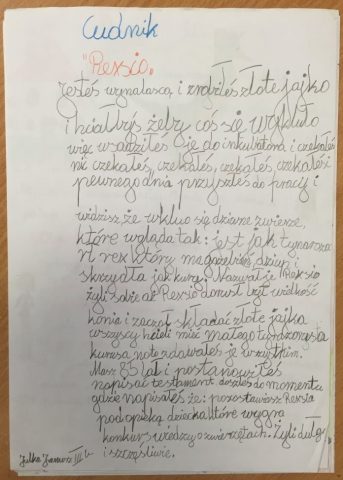 Cudnik
"Rexio"
Jesteś wynalascą i zrobiłeś złote jajko
i hiałbyś żeby coś się wykluło
więc wsadziłeś je do inkubatora i czekałeś
nic czekałeś, czekałeś, czekałeś, czekałeś i
pewnego dnia przyszłeś do pracy i
widzisz że wkluo się dziwne zwierze,
które wgląda tak: jest jak tyranozaur
rex który ma dziup i
skrzydła jak kura. Nazwał je "Reksio
żyli sobie aż Rexio dorusł był wielkość
konia i zaczoł składać złote jajka
wszyscy hcieli mieć małego tyranozaura
kurasa noto zdowałeś je wszytkim.
Masz 85 lat i postanowiłeś
napisać testament doszłeś do momentu
gdzie napisałeś że: pozostawiasz Rexia
pod opieką dziecka które wygra
konkurs wiedzy o zwierzętach. Żyli dułgo
i szczęśliwie.
Julka III b